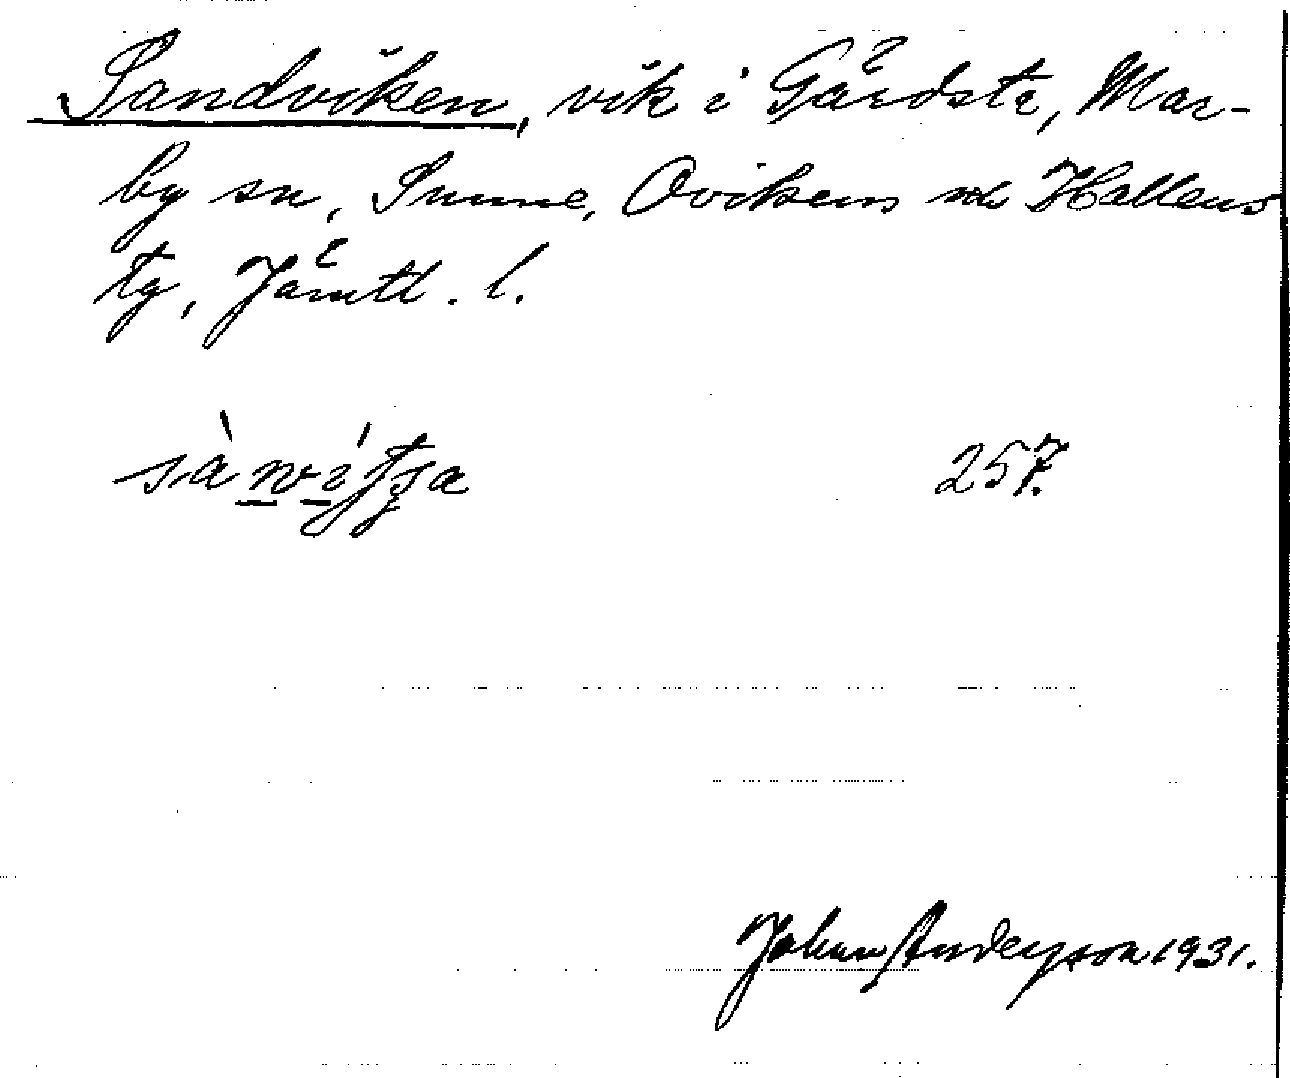 Sandviken, vik i Gärdste, Mar-
by sn, Sunne, Ovikens och Hallens
tg, Jämtl. l.
257.
Johan Anderson 1931.